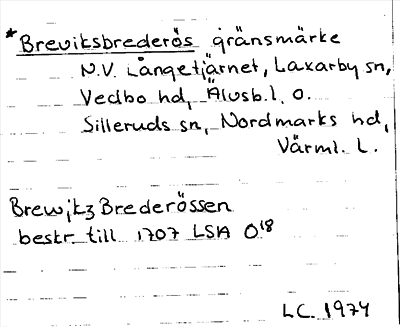 *Breviksbrederös gränsmärke
N.V. Långetjärnet, Laxarby sn,
Vedbo hd, Älvsb. l. o.
Silleruds sn, Nordmarks hd,
Värml. l.
Brewitz Brederössen
bestr. till 1707 LSA O¹⁸
LC. 1974